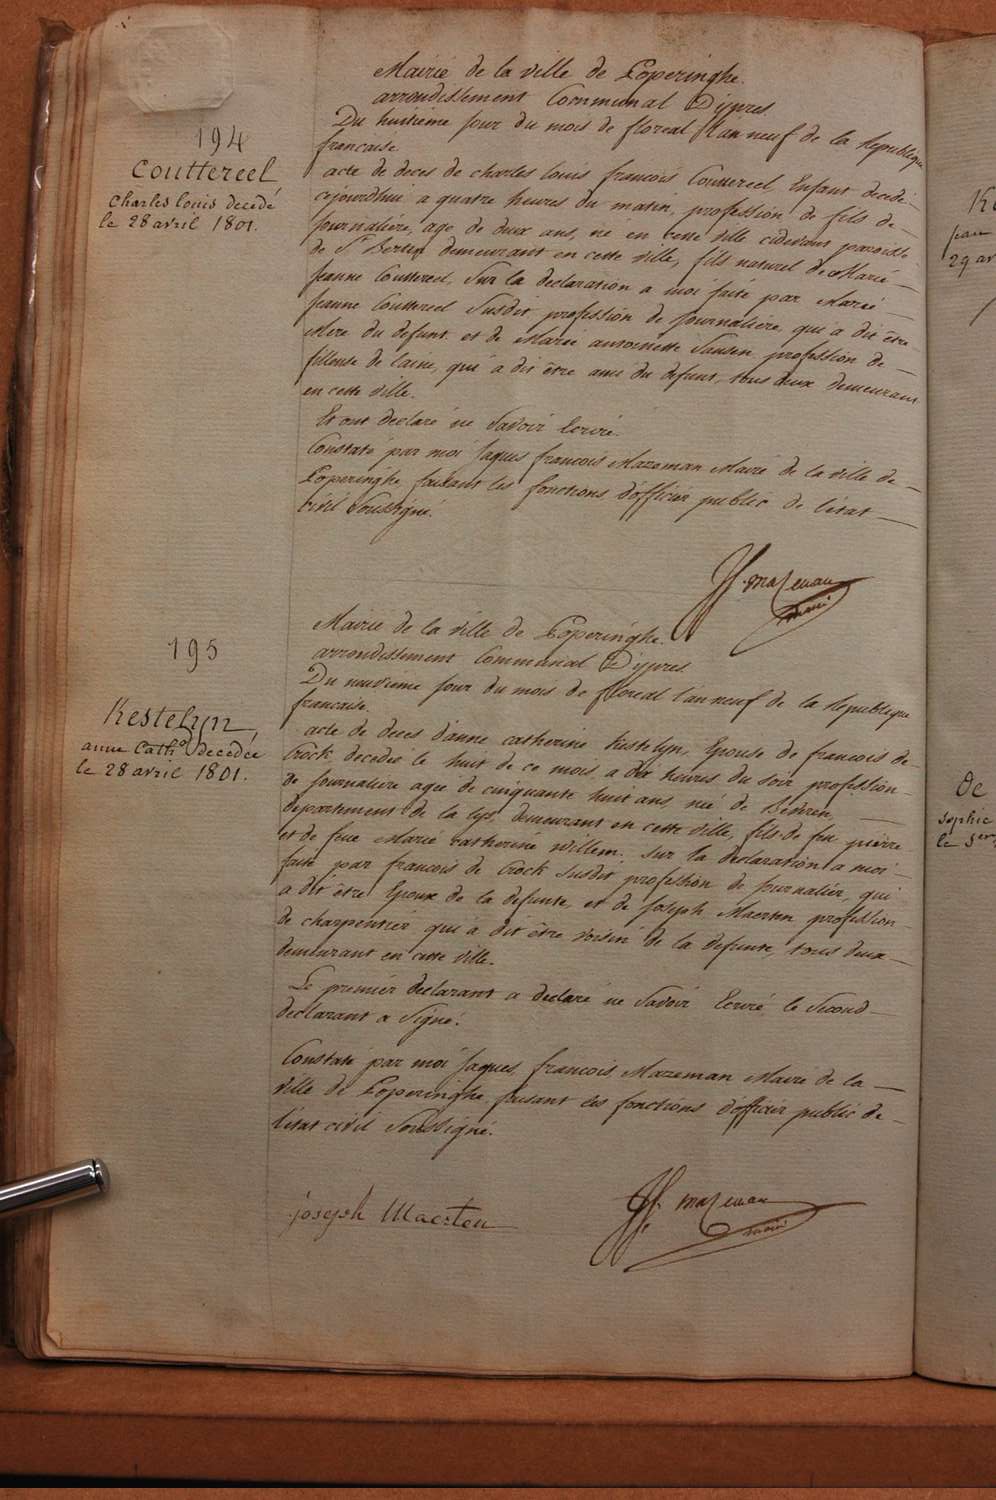 194
Couttereel
Charles louis decedé
le 28 avril 1801.
Mairie de la ville de Poperinghe.
arrondissement Communal D'ypres
Du huitieme jour du mois de floreal l'an neuf de la Republique
francaise
acte de deces de charles louis francois Couttereel Enfant decedé
cejourdhui a quatre heures du matin, profession de fils de
journaliére, age de deux ans, né en cette ville cidevant paroisse
de St Bertin demeurant en cette ville, fils naturel de Marié
jeanne Couttereel, Sur la declaration a moi faité par Marié
jeanne Couttereel Susdit profession de journaliére qui a dit être
Mere du defunt, et de Marie antoinette Jansen, profession de
fileuse de laine, qui á dit être amie du defunt, tous deux demeurant
en cette ville.
Et ont declaré ne Savoir Ecrire.
Constaté par moi Jaques francois Mazeman Mairé de la ville de
Poperinghe, faisant les fonctions d'officier public de l'etat
civil Soussigné.
JF. mazeman
maire
195
Kestelyn,
anne Cathe. decedée
le 28 avril 1801.
Mairie de la ville de Poperinghe.
arrondissement Communal D'ypres
Du neuvieme jour du mois de floreal l'an neuf de la Republique
francaise.
acte de deces d'anne catherine Kestelyn, Epouse de francois de
Crock, decedée le huit de ce mois, a dix heures du soir profession
de journaliere agee de cinquante huit ans, née de
departement de la Lys, demeurant en cette ville, fils de feu pierre
et de feue Marié catheriné Willem, Sur la declaration a moi
faité par francois de Crock Susdit profession de journaliér, qui
a dit être Epoux de la defunte, et de Joseph Maerten profession
de charpentiér qui á dit être voisin de la defunte, tous deux
demeurant en cette ville.
Le premiér declarant a declaré ne Savoir Ecriré, le Second
declarant a Signé.
Constaté par moi Jaques francois Mazeman Mairé de la
ville de Poperinghe, faisant les fonctions d'officiér public de
l'etat civil Soussigné.
joseph Maerten
JF. mazeman
maire
Ke
29 av
De
sophie
le 5er